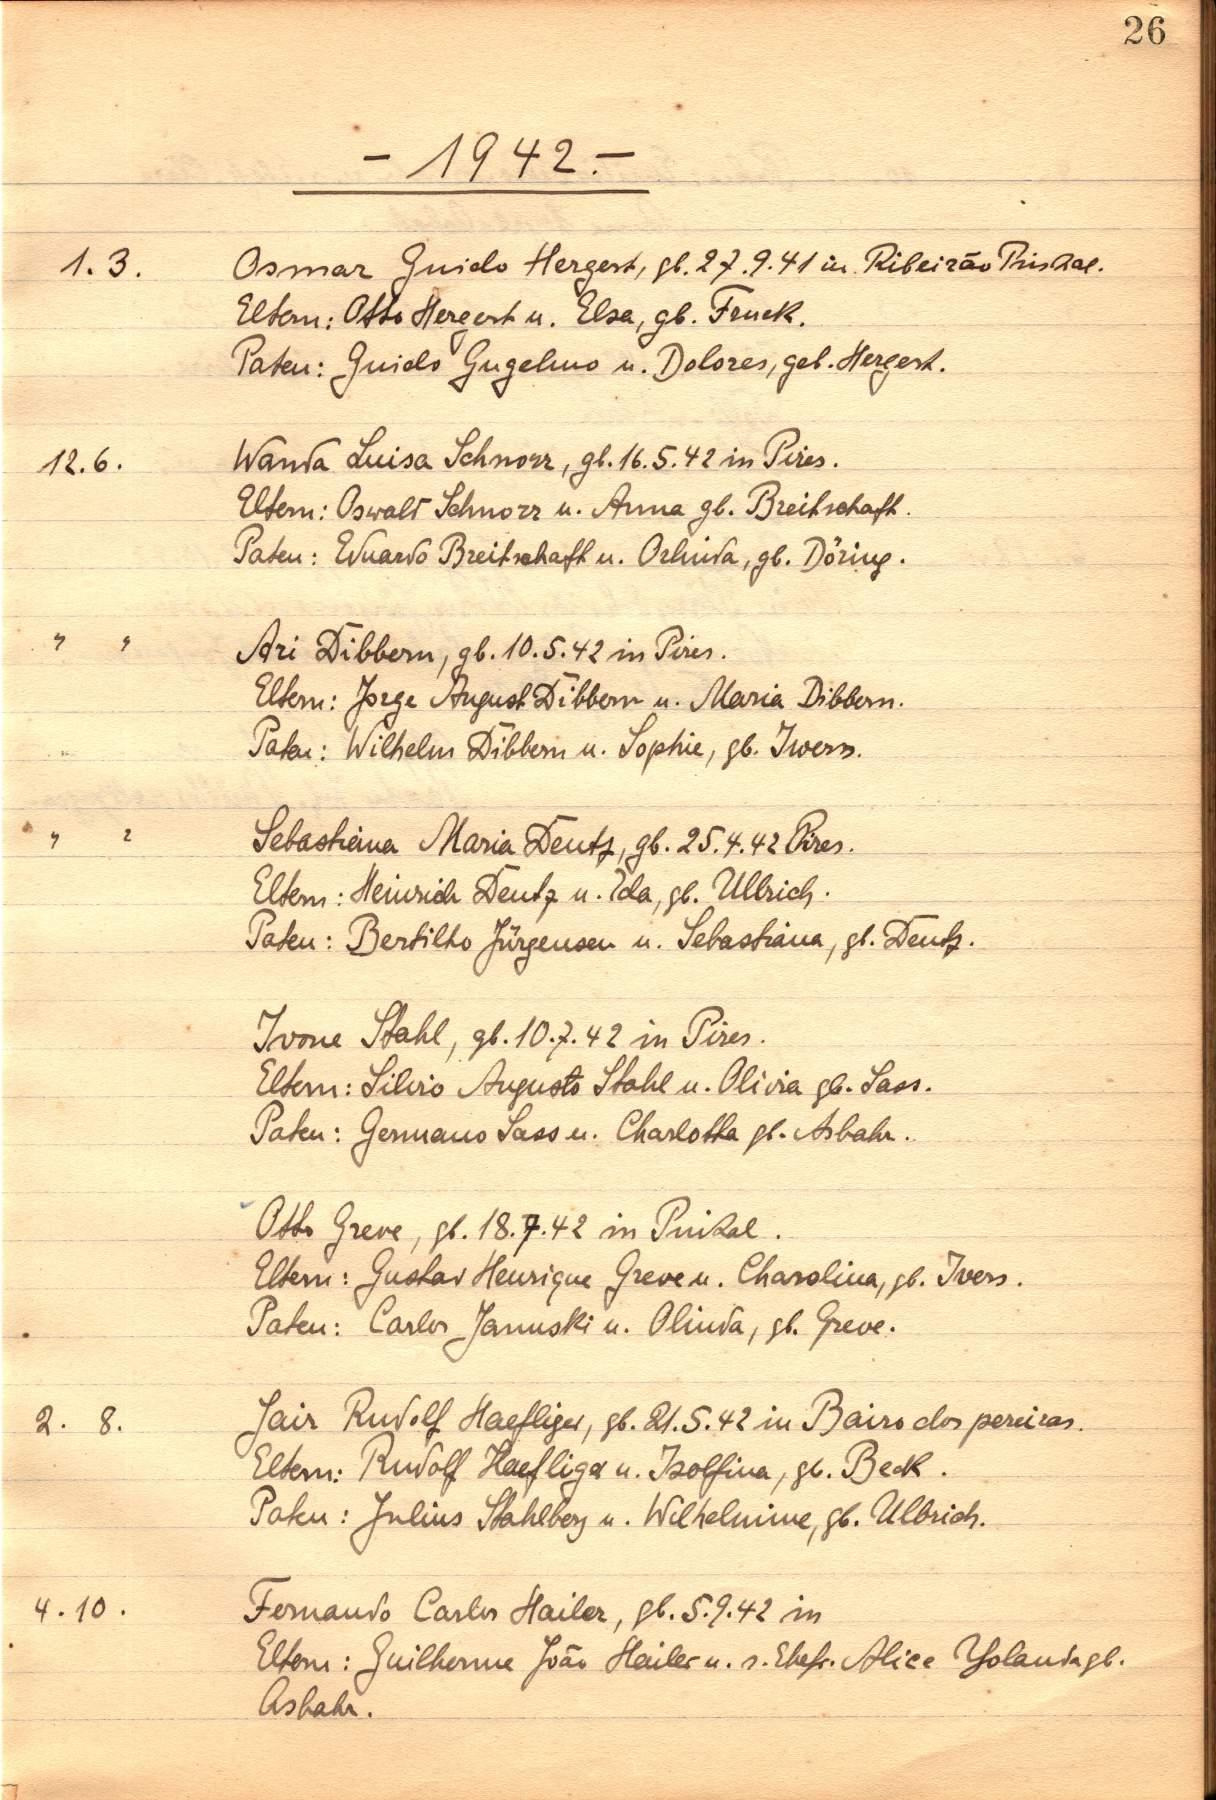 26
- 1942. -
1. 3. Osmar Guido Hergert, gb. 27.9.41 in Ribeirão
Eltern: Otto Hergert u. Elsa, gb. Fruck.
Paten: Guido Gugelmo u. Dolores, geb. Hergert.
12. 6. Wanda Luisa Schnorr, gb. 16.5.42 in Pires.
Eltern: Oswald Schnorr u. Anna gb. Breitschaft.
Paten: Eduardo Breitschaft u. Orlinda, gb. Döring.
" " Ari Dibbern, gb. 10.5.42 in Pires.
Eltern: Jorge August Dibbern u. Maria Dibbern.
Paten: Wilhelm Dibbern u. Sophie, gb. Iwers.
" " Sebastiana Maria Deutz, gb. 25.4.42 Pires.
Eltern: Heinrich Deutz u. Ida, gb. Ullrich.
Paten: Bertilho Jürgensen u. Sebastiana, gb. Deutz.
Ivone Stahl, gb. 10.7.42 in Pires.
Eltern: Silvio Augusto Stahl u. Olivia gb. Sass.
Paten: Germano Sass u. Charlotta gb. Asbahr.
Otto Greve, gb. 18.7.42 in
Eltern: Gustav Henrique Greve u. Charolina, gb. Ivers.
Paten: Carlos Januski u. Olinda, gb. Greve.
2. 8. Jair Rudolf Haefliger, gb. 21.5.42 in Bairo dos pereiras.
Eltern: Rudolf Haefliger u. Isolfina, gb. Beck.
Paten: Julius Stahlberg u. Wilhelmine, gb. Ulbrich.
4. 10. Fernando Carlos Hailer, gb. 5.9.42 in
Eltern: Guilherme João Hailer u. s. Ehefr. Alice Yolanda gb.
Asbahr.